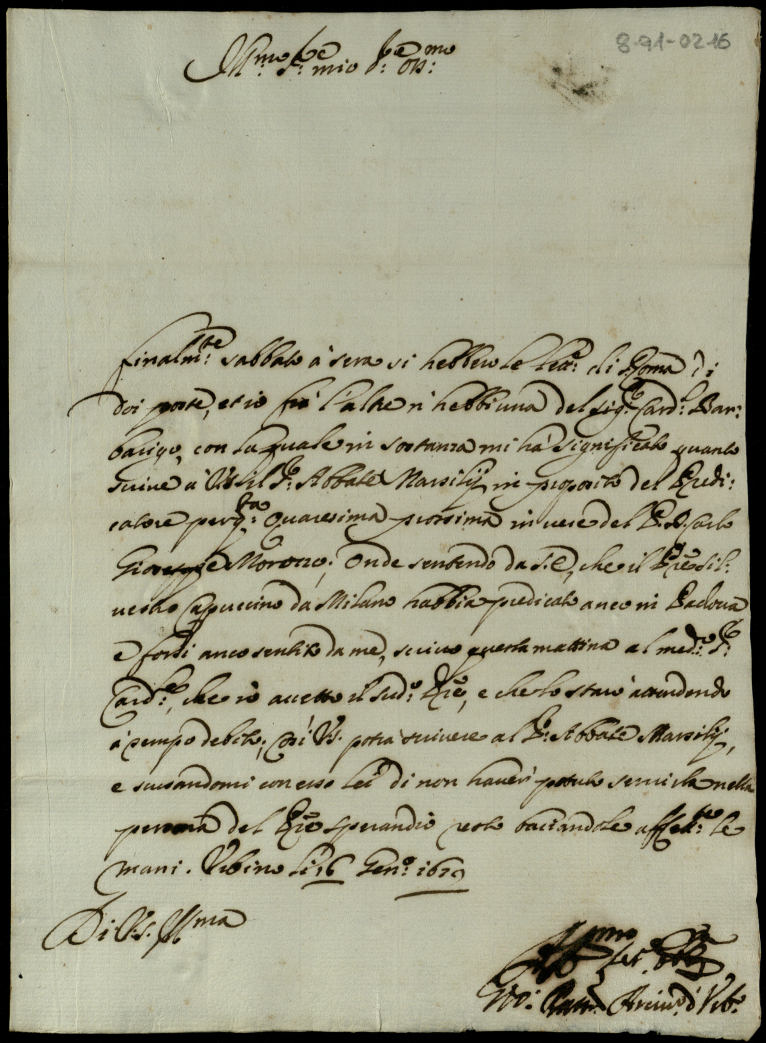 8-91-02-16
Ill.mo Sig.re mio Sig.re Oss.mo
Finalm.te sabbato à sera si hebbero le lett.e di Roma di
doi poste, et io frà l'altre n'hebbi una del Sig.r Card.l Bar:
barigo, con la quale in sostanza mi hà significato quanto
scrive à V.S. il S.r Abbate Marsilij in proposito del Predi:
catore per q.ta Quaresima prossima in vece del P. D. Carlo
Giuseppe Morozzo; Onde sentendo da S.E, che il P.re Sil:
vestro Capuccino da Milano habbia predicato anco in Padova
e forsi anco sentito da me, scrivo questa mattina al med.o S.r
Card.le, che io accetto il sud.o P.re, e che lo starò attendendo
à tempo debito; Così V.S. potrà scrivere al S.r Abbate Marsilij,
e scusandomi con esso lei di non haver potuto servirla nella
persona del P.re Sperandio resto baciandole affett.te le
mani. Urbino li 16 Gen.o 1679
Di V.S. Ill.ma
Aff.mo Ser.
Arciv.o d'Urb.o